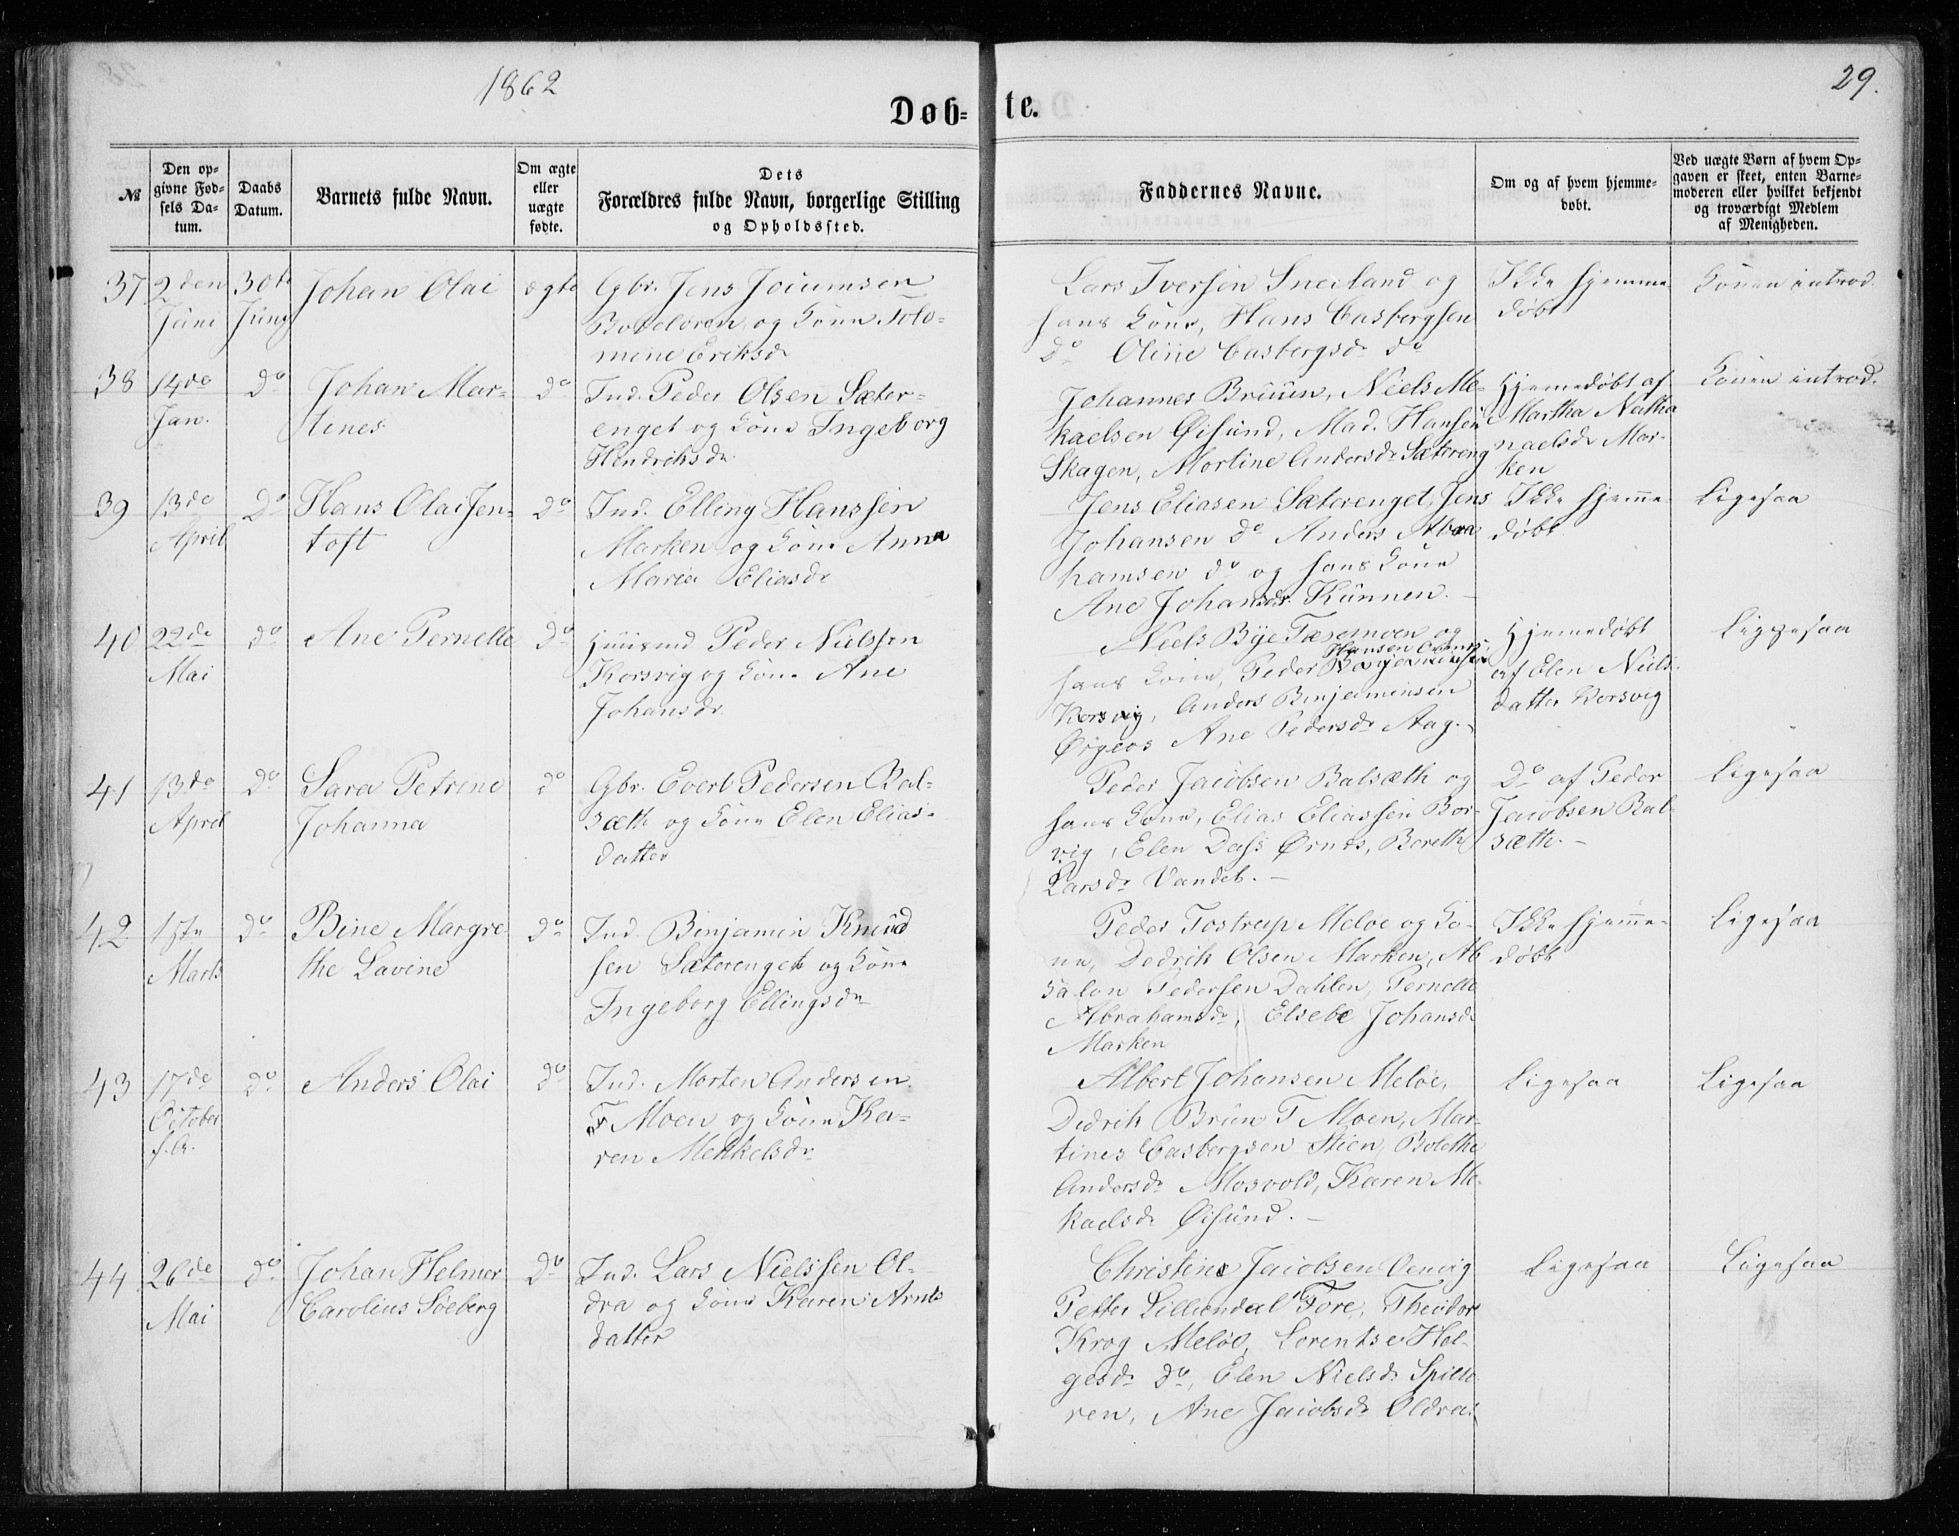 1862
29.
Døb-te.
№
Den opgivne Fødsels Datum.
Daabs Datum.
Barnets fulde Navn.
Om ægte eller uægte fødte.
Dets Forældres fulde Navn, borgerlige Stilling og Opholdssted.
Faddernes Navne.
Om og af hvem hjemmedøbt.
Ved uægte Børn af hvem Opgaven er skeet, enten Barnemoderen eller hvilket bekjendt og troværdigt Medlem af Menigheden.
37 2den Juni
30te Juny
Johan Olai
ægte
Gbr. Jens Joiumsen
og Kone Tolo-
mine Eriksdr
Lars Iversen Sneiland og
hans Kone, Hans Casbergsen
do Oline Casbergsdr do
Ikke hjemme-
døbt
Konen introd.
38 14de Jan.
do
Johan Mar-
tines
do
Ind. Peder Olsen Sæter-
enget og Kone Ingeborg
Hendriksdr
Johannes Bruun, Niels Me-
kaelsen Øisund, Mad. Hansen
Skagen, Mortine Andersdr Sætereng
Hjemedøbt af
Martha Natha
naelsdr Mar-
ken
Konen introd.
39 13de April
do
Hans Olai Jen-
toft
do
Ind. Elling Hanssen
Marken og Kone Anna
Maria Eliasdr
Jens Eliasen Sæterenget, Jens
Johansen do Anders Abra
hamsen do og hans Kone
Ane Johansdr Kunnen.
Ikke hjemme-
døbt
Ligesaa
40 22de Mai
do
Ane Pernelle
do
Huusmd Peder Nielssen
Korsvig og Kone Ane
Johansdr
Niels Bye Tæremoen og
hans Kone, Peder
Korsvig, Anders Benjaminsen
Ane Pedersdr Aag.
Hjemedøbt
af Elen Niels
datter Korsvig
Ligesaa
41 13de April
do
Sara Petrine
Johanna
do
Gbr. Evert Pedersen Bal-
sæth og Kone Elen Elias-
datter
Peder Jacobsen Balsæth og
hans Kone, Elias Eliassen Bor-
vig, Elen Dass Ørnes, Bereth
Larsdr Vandet.
Do af Peder
Jacobsen Bal-
sæth.
Ligesaa
42 1ste Marts
do
Bine Margre
the Lavine
do
Ind. Binjamin Knud
sen Sæterenget og Kone
Ingeborg Ellingsdr
Peder Tostrup Meløe og Ko-
ne, Dedrik Olsen Marken, Ab
salon Pedersen Dahlen, Pernelle
Abrahamsdr, Elsebe Johansdr
Marken
Ikke hjemme-
døbt
Ligesaa
43 17de October f.A.
do
Anders Olai
do
Ind. Morten Andersen
T Moen og Kone Ka-
ren Mekkelsdr
Albert Johansen Meløe,
Dedrik Brun T Moen, Mar-
tines Casbergsen Stien, Bolethe
Andersdr Mosvold, Karen Me-
kaelsdr Øisund.
Ligesaa
Ligesaa
44 26de Mai
do
Johan Helmer
Carolius Søeberg
do
Ind. Lars Nielssen Ol-
dra og Kone Karen Arnts
datter
Christine Jacobsen
Petter Lilliendal Fore, Theodor
Krog Meløe, Lorentse Hel-
gesdr do, Elen Nielsdr Spilde
ren, Ane Jacobsdr Oldra
Ligesaa
Ligesaa